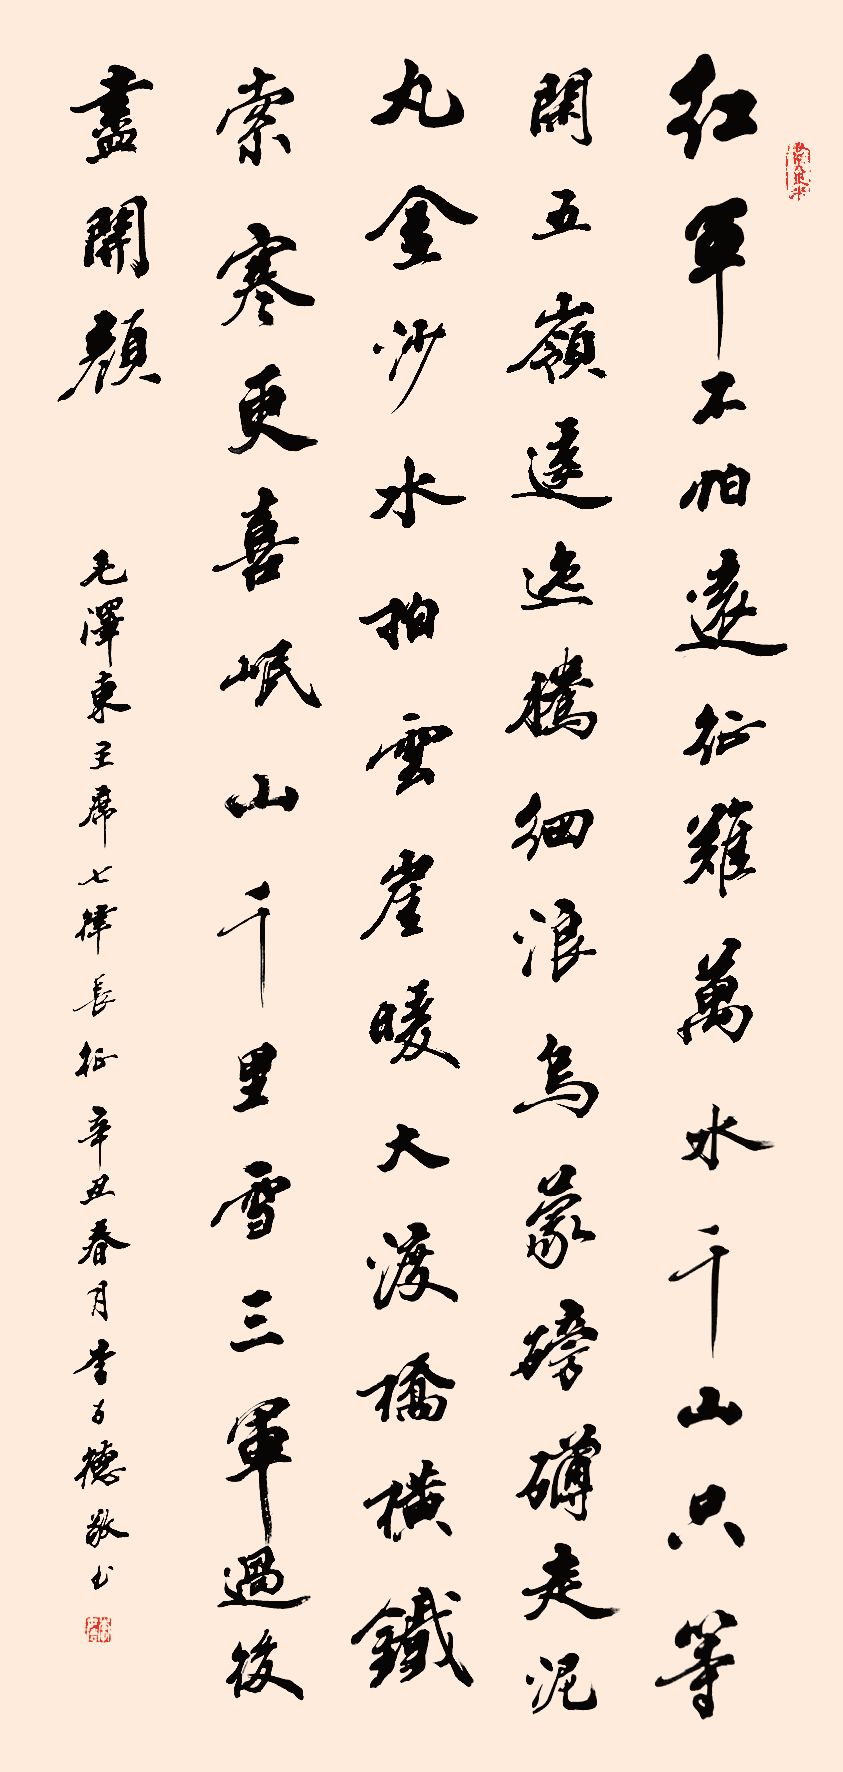 紅軍不怕遠征難萬水千山只等
閑五嶺逶迤騰細浪烏蒙磅礴走泥
丸金沙水拍雲崖暖大渡橋橫鐵
索寒更喜岷山千里雪三軍過後
盡開顏
毛澤東主席七律長征辛丑春月李德敬书